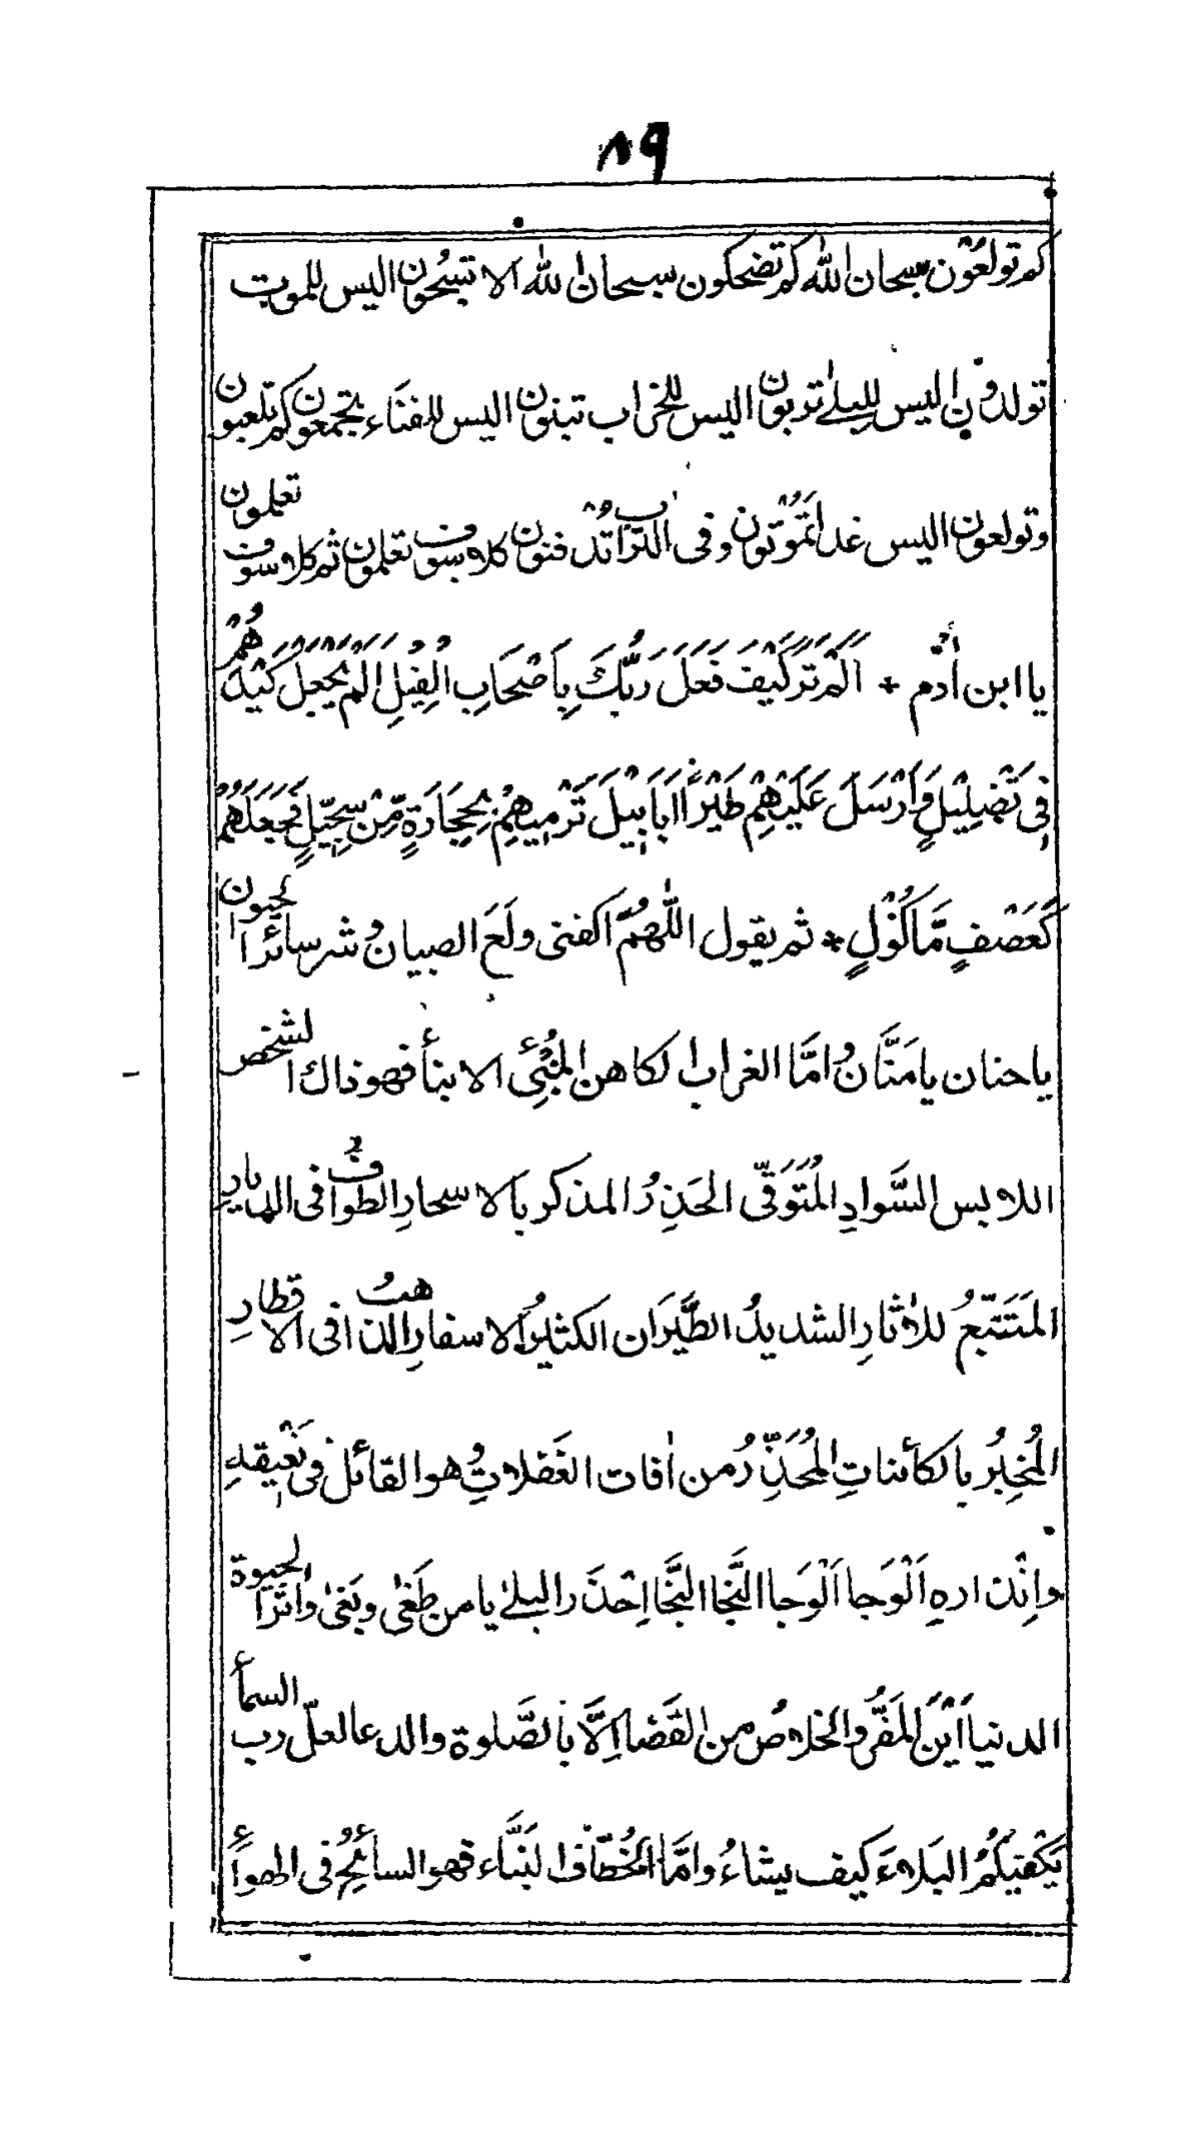 ٨٩
كم تولعُوْن سبحان اللّٰه كم تضحكون سبحان اللّٰه الا تسبّحون اليس للموت
تولدوْن اليس للبلےٰ تربون اليس للخراب تبنون اليس للفنَاء تجمعون كم تلعبون
وتولعون اليس غدا تَمُوْتون وفى التراب تُدْفنون كلا سوف تعلمون ثم كلا سوف تعلمون
يا ابن اٰدَم * اَلَمْ تَرَ كَيْفَ فَعَلَ رَبُّكَ بِاَصْحَابِ الْفِيْلِ اَلَمْ يَجْعَلْ كَيْدَهُمْ
فِىْ تَضْلِيْلٍ وَّاَرْسَلَ عَلَيْهِمْ طَيْرًا اَبَابِيْلَ تَرْمِيْهِمْ بِحِجَارَةٍ مِّنْ سِجِّيْلٍ فَجَعَلَهُمْ
كَعَصْفٍ مَّاكُوْلٍ * ثم يقول اللّٰهُمَّ اكفنى ولَعَ الصبيانُ شر سائر الحيون
يا حنان يا مَنَّانُ امَّا الغراب الكاهن المُنْبِئُ الا بنأ فهو ذاك الشخص
اللابس السَّوادِ المُتَوَقّى الحَذِرُ المذكر بالاسحارِ الطوافُ فى الديارِ
المَتَتَبّعُ للاٰثارِ الشديدُ الطَّيَرَان الكثيرُ الاسفارِ الذاهبُ فى الاقطارِ
المُخبِرُ بالكائناتِ المُحَذِّرُ من اٰفات الغَفلاتِ وُهو القائل فى نَعْيِقهِ
وانْذارهِ اَلْوَجا اَلْوَجا النَّجا النَّجا اِحْذَر البلےٰ يا من طَغىٰ وبَغىٰ واٰثَرَ الحيوة
الدنيا اَيْنَ المَفَرُّ والخلاصُ من القَضا اِلَّا بالصَّلوة والدعا لعلّ رب السمأ
يَكْفيكُمُ البَلاءَ كيف يشاءُ وامَّا الخُطّاف البَنَّاء فهو السائحُ فى الهوأ